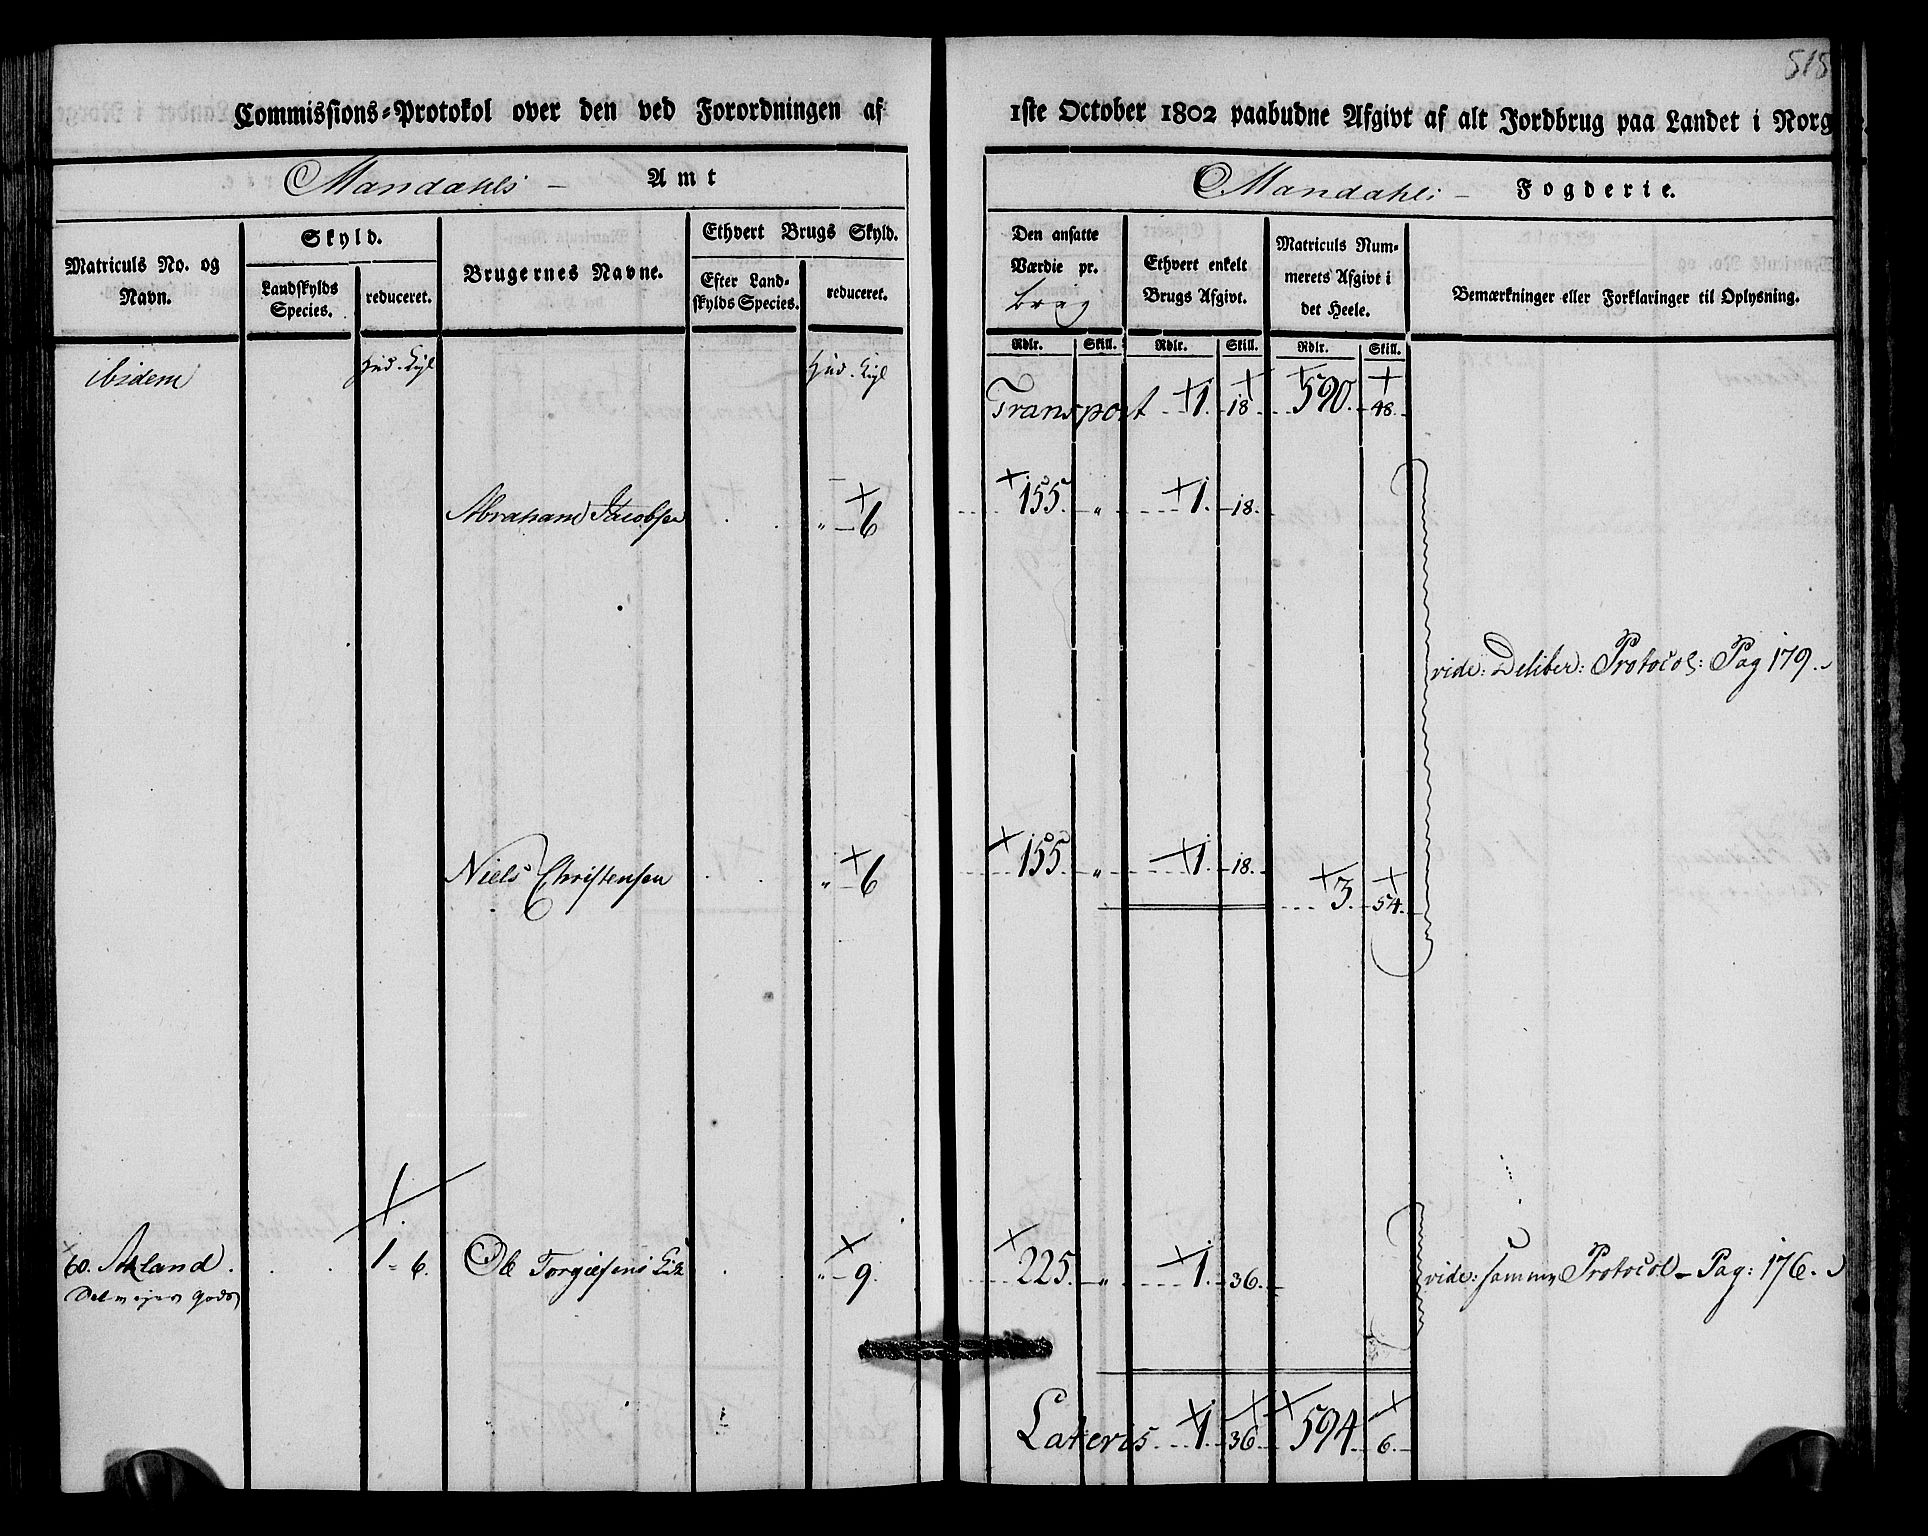 515
Commissions=Protokol over den ved Forordningen af 1ste October 1802 paabudne Afgivt af alt Jordbrug paa Landet i Norg
Mandahls - Amt
Mandahls - Fogderie.
Matriculs No. og Navn.
Skyld.
Landskylds Species.
reduceret.
Brugernes Navne.
Ethvert Brugs Skyld.
Efter Land-skylds Species.
reduceret.
Den ansatte Værdie pr. brug
Ethvert enkelt Brugs Afgivt.
Matriculs Num-merets Afgivt i det Heele.
Bemærkninger eller Forklaringer til Oplysning.
Rdlr. Skill. Rdlr. Skill. Rdlr. Skill.
ibidem
Transport 1. 18 590. 48.
Abraham Jacobsen " 6 155. " 1. 18.
vide: Deliber: Protocol: Pag 179.
Niels Christensen " 6 155. " 1. 18. 3. 54.
60. Aaland. 1. 6. Ole " 9. 225. " 1. 36. vide: samme Protocol - Pag: 176.
Lateris 1. 36 594. 6.